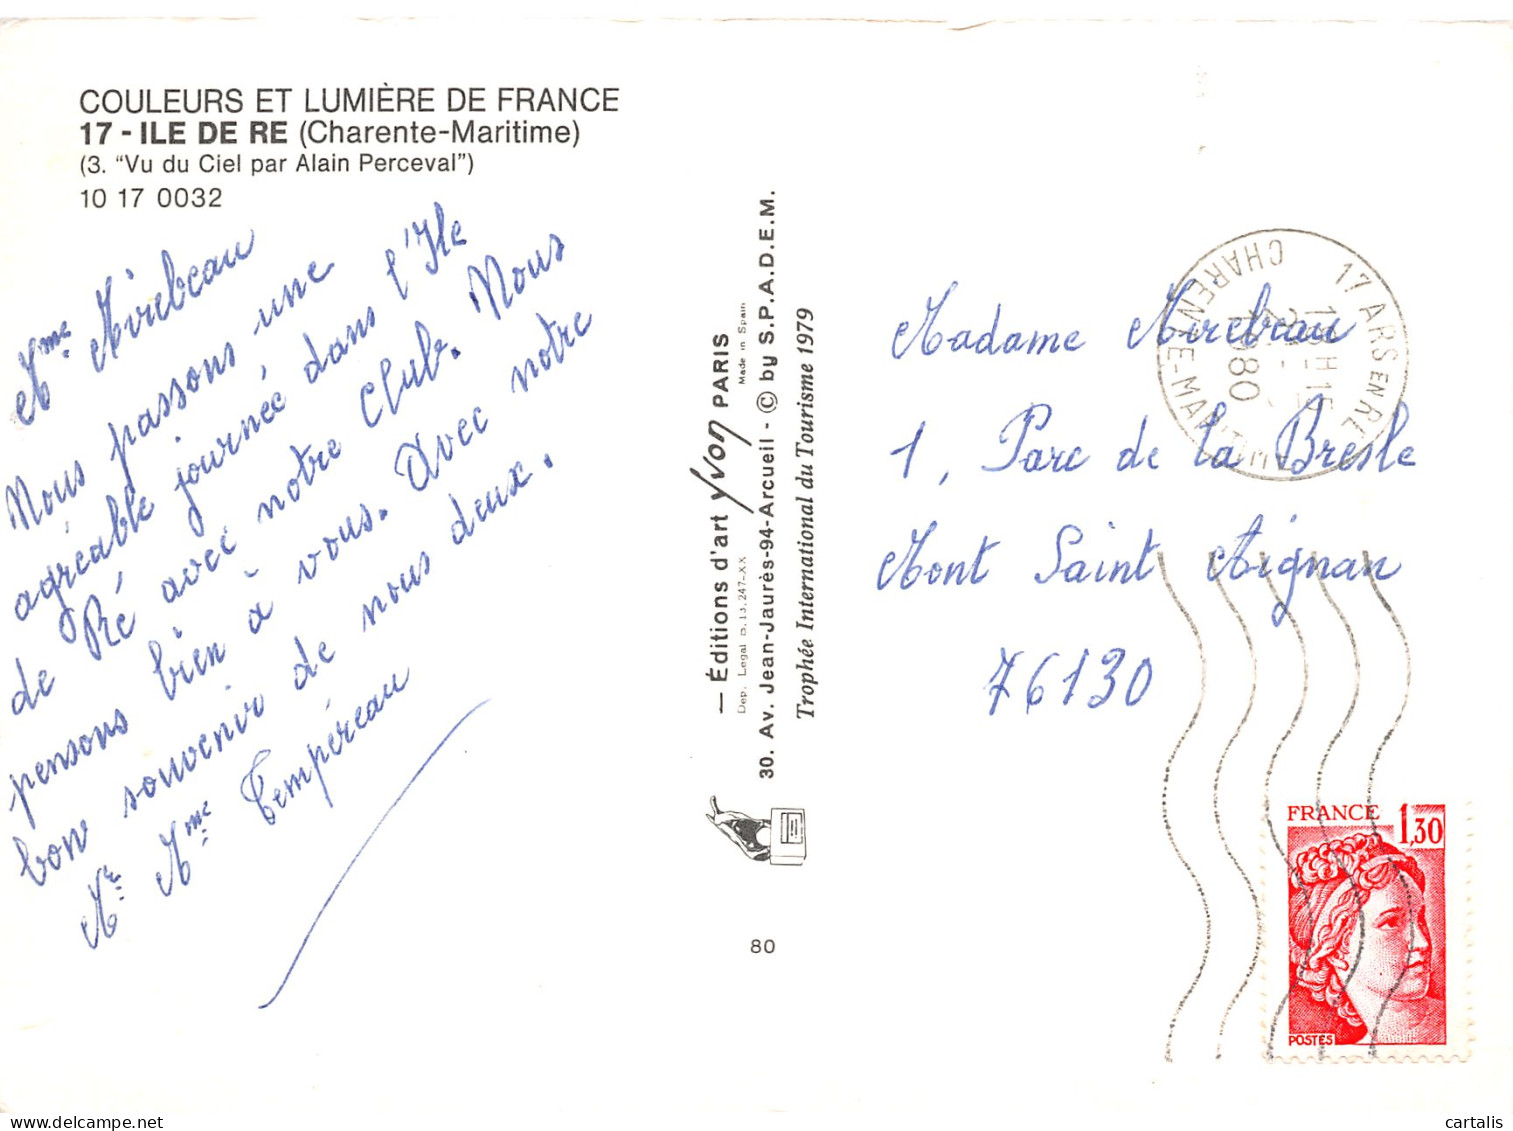 COULEURS ET LUMIÈRE DE FRANCE
17 - ILE DE RE (Charente-Maritime)
(3. “Vu du Ciel par Alain Perceval”)
10 17 0032
Mme Mirebeau
Nous passons une
agréable journée dans l'Ile
de Ré avec notre Club. Nous
pensons bien à vous. Avec notre
bon souvenir de nous deux.
Mr Mme Tempéreau
— Éditions d'art Yvon PARIS
Dep. Legal B. 13.247-XX Made in Spain
30. Av. Jean-Jaurès-94-Arcueil - © by S.P.A.D.E.M.
Trophée International du Tourisme 1979
80
17 ARS EN RE
CHARENTE-MARITIME
1980
Madame Mirebeau
1, Parc de la Bresle
Mont Saint Aignan
76130
FRANCE 1,30
POSTES
cartalis